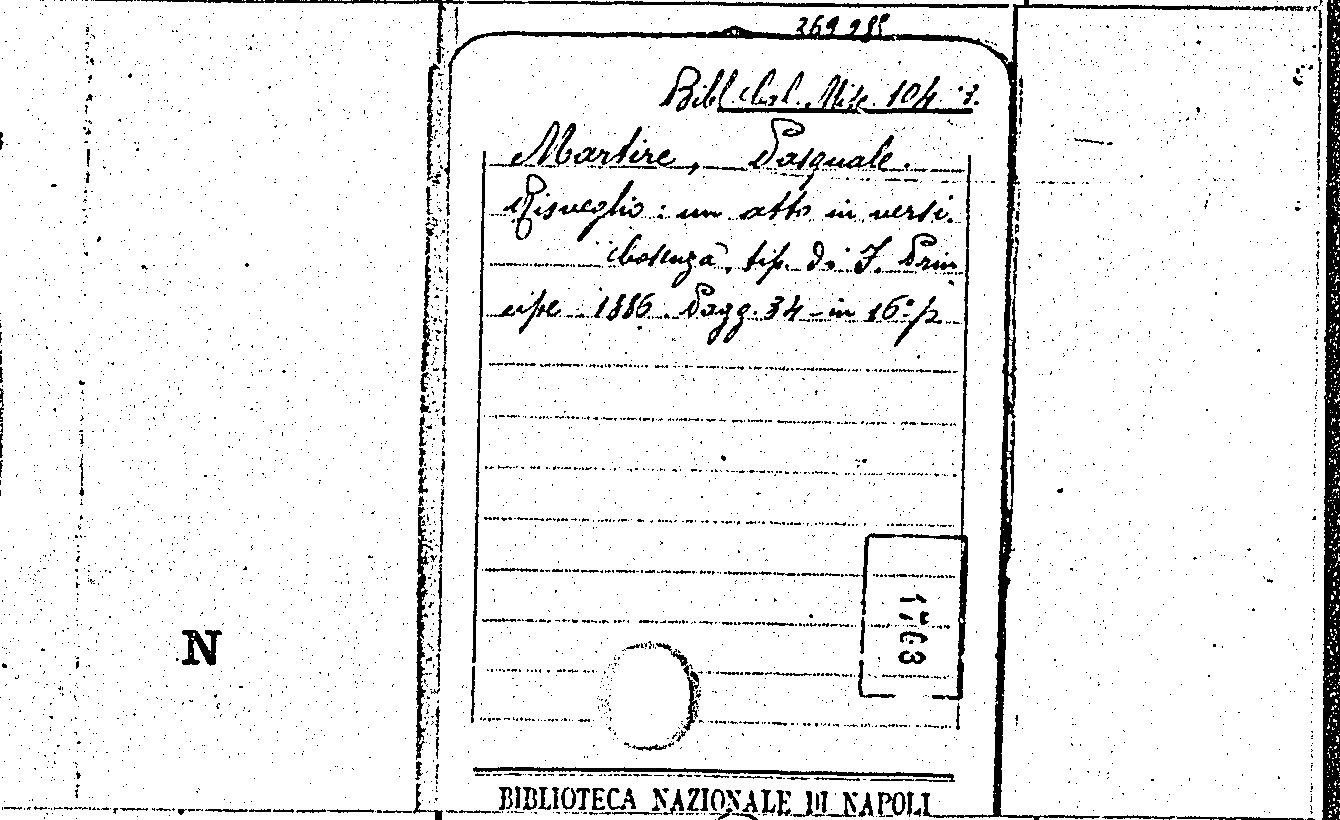 269985
Bibl. Misc. 104
Martire, Pasquale.
Risveglio: un atto in versi.
Cosenza, tip. di F. Prin
cipe 1886. Pagg. 34 - in 16° p.
1768
N
BIBLIOTECA NAZIONALE DI NAPOLI